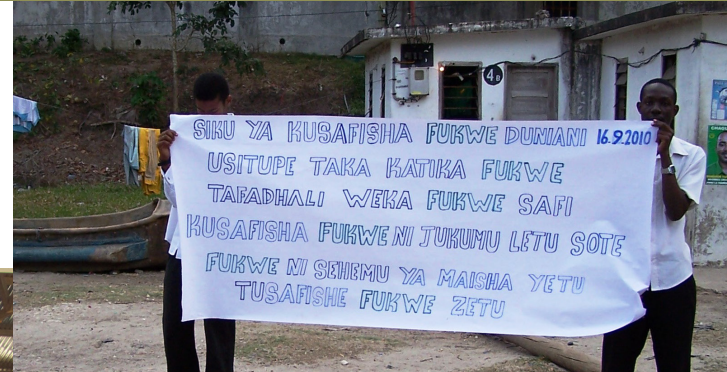 SIKU YA KUSAFISHA FUKWE DUNIANI 16.9.2010
USITUPE TAKA KATIKA FUKWE
TAFADHALI WEKA FUKWE SAFI
KUSAFISHA FUKWE NI JUKUMU LETU SOTE
FUKWE NI SEHEMU YA MAISHA YETU
TUSAFISHE FUKWE ZETU
4B